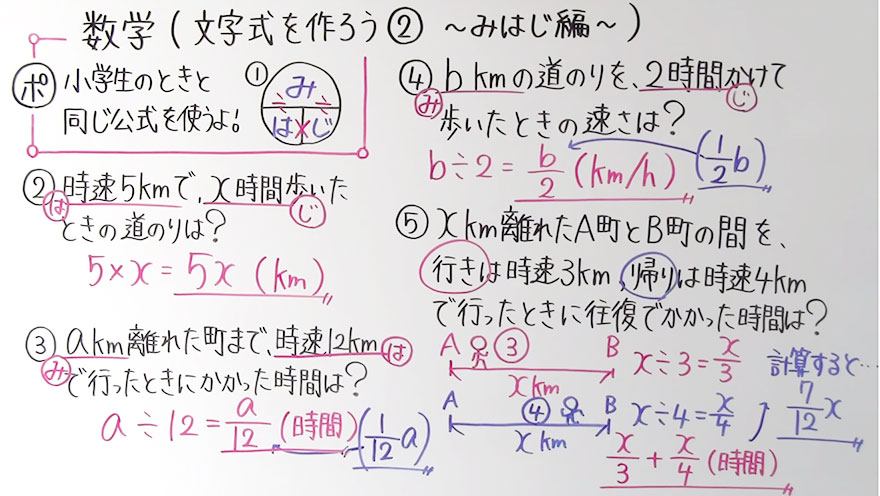 数学(文字式を作ろう② ～みはじ編～)
ポ 小学生のときと
同じ公式を使うよ!
①
み
÷ ÷
は×じ
② 時速5kmで、x時間歩いた
は じ
ときの道のりは?
5×x=5x (km)
③ akm離れた町まで、時速12km
み は
で行ったときにかかった時間は?
a÷12=a/12 (時間) (1/12 a)
④ bkmの道のりを、2時間かけて
み じ
歩いたときの速さは?
b÷2=b/2 (km/h) (1/2 b)
⑤ xkm離れたA町とB町の間を、
行きは時速3km,帰りは時速4km
で行ったときに往復でかかった時間は?
A ③ B x÷3=x/3 計算すると…
xkm
A ④ B x÷4=x/4 7/12 x
xkm
x/3+x/4 (時間)